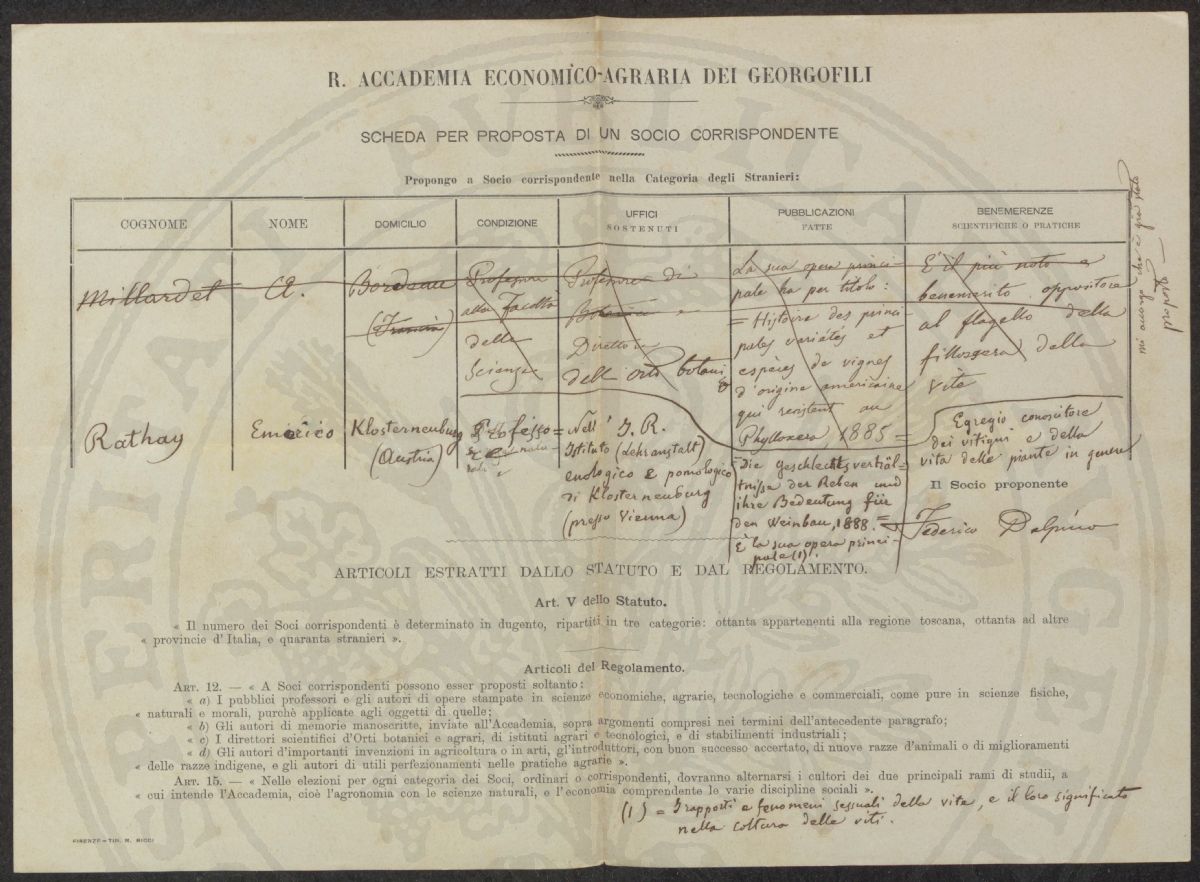 R. ACCADEMIA ECONOMICO-AGRARIA DEI GEORGOFILI
SCHEDA PER PROPOSTA DI UN SOCIO CORRISPONDENTE
Propongo a Socio corrispondente nella Categoria degli Stranieri:
COGNOME
NOME
DOMICILIO
CONDIZIONE
UFFICI
SOSTENUTI
PUBBLICAZIONI
FATTE
BENEMERENZE
SCIENTIFICHE O PRATICHE
Millardet
A.
Bordeau
(Francia)
Professore
alla facoltà
delle
Scienze
Professore di
Botanica e
Direttore
dell'orto botani
co
La sua opera princi-
pale ha per titolo:
= Histoire des princi-
pales variétés et
espèces de vignes
d'origine américaine
qui resistent au
Phylloxera 1885 =
È il più noto e
benemerito oppositore
al flagello della
fillossera della
vite
mi accorgo che è già stato
proposto —
Rathay
Emerico
Klosterneuburg
(Austria)
Professo=
re
Nell' I. R.
Istituto (Lehranstalt)
enologico e pomologico
di Klosterneuburg
(presso Vienna)
= Die Geschlechtsverhäl-
tnisse der Reben und
ihre Bedeutung für
den Weinbau, 1888. =
È la sua opera princi-
pale (1).
Egregio conoscitore
dei vitigni e della
vita delle piante in genere
Il Socio proponente
Federico Delpino
ARTICOLI ESTRATTI DALLO STATUTO E DAL REGOLAMENTO.
Art. V dello Statuto.
« Il numero dei Soci corrispondenti è determinato in dugento, ripartiti in tre categorie: ottanta appartenenti alla regione toscana, ottanta ad altre
« provincie d'Italia, e quaranta stranieri ».
Articoli del Regolamento.
ART. 12. — « A Soci corrispondenti possono esser proposti soltanto:
« a) I pubblici professori e gli autori di opere stampate in scienze economiche, agrarie, tecnologiche e commerciali, come pure in scienze fisiche,
« naturali e morali, purchè applicate agli oggetti di quelle;
« b) Gli autori di memorie manoscritte, inviate all'Accademia, sopra argomenti compresi nei termini dell'antecedente paragrafo;
« c) I direttori scientifici d'Orti botanici e agrari, di istituti agrari e tecnologici, e di stabilimenti industriali;
« d) Gli autori d'importanti invenzioni in agricoltura o in arti, gl'introduttori, con buon successo accertato, di nuove razze d'animali o di miglioramenti
« delle razze indigene, e gli autori di utili perfezionamenti nelle pratiche agrarie ».
ART. 15. — « Nelle elezioni per ogni categoria dei Soci, ordinari o corrispondenti, dovranno alternarsi i cultori dei due principali rami di studii, a
« cui intende l'Accademia, cioè l'agronomia con le scienze naturali, e l'economia comprendente le varie discipline sociali ».
(1) = I rapporti e fenomeni sessuali della vite, e il loro significato
nella coltura delle viti.
FIRENZE — TIP. M. RICCI